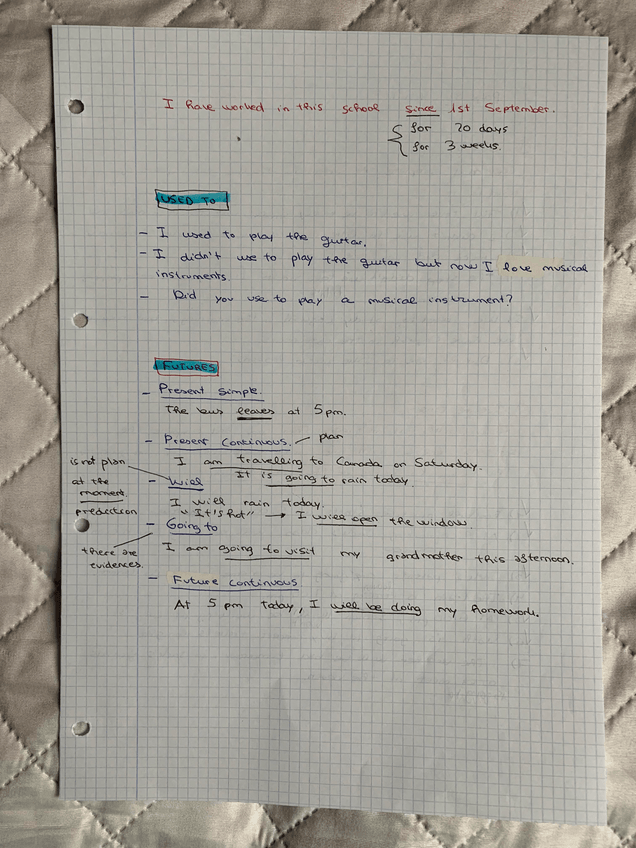 I have worked in this school since 1st September.
for 20 days
for 3 weeks.
USED TO
- I used to play the guitar.
- I didn't use to play the guitar but now I love musical
instruments.
- Did you use to play a musical instrument?
FUTURES
- Present simple.
The bus leaves at 5 pm.
- Present continuous. plan
I am travelling to Canada on Saturday.
is not plan
at the
moment.
prediction
It is going to rain today.
- Will
I will rain today.
"It's hot" → I will open the window.
- Going to
there are
evidences.
I am going to visit my grandmother this afternoon.
- Future continuous
At 5 pm today, I will be doing my homework.